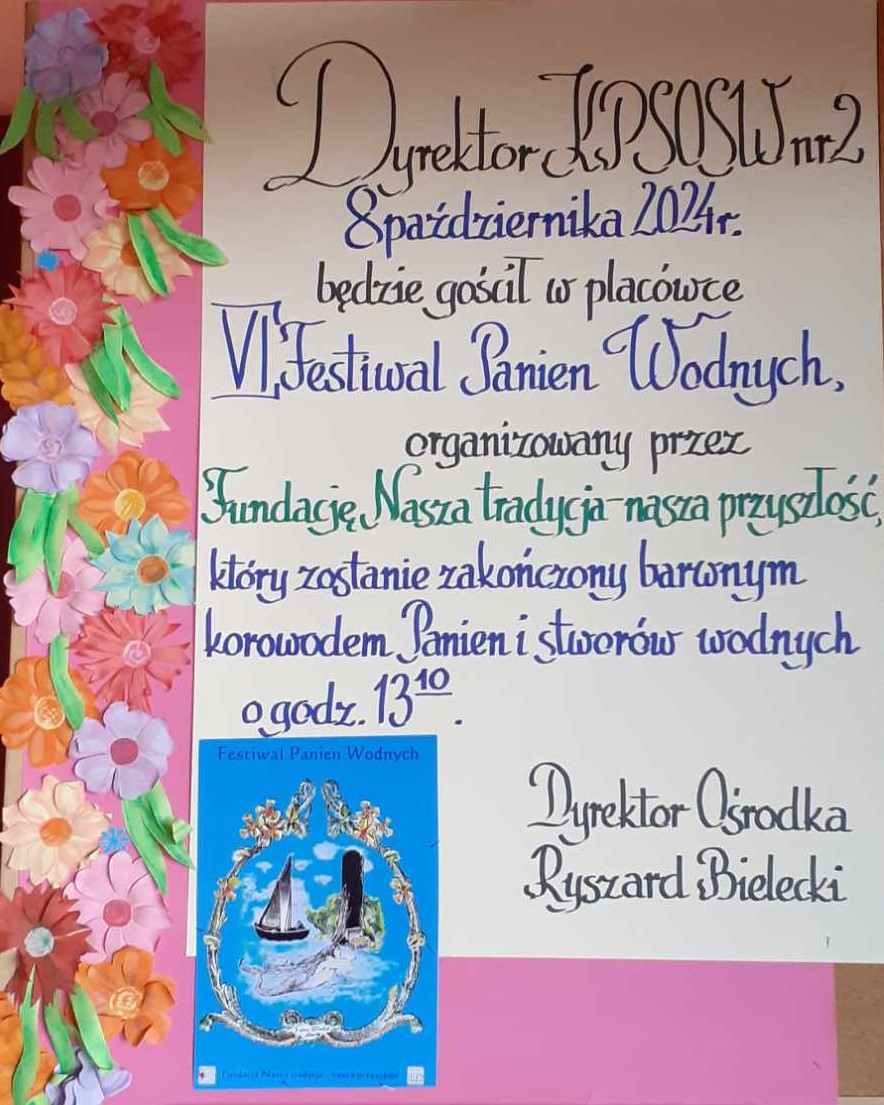 Dyrektor KPSOSW nr 2
8 października 2024 r.
będzie gościł w placówce
VI Festiwal Panien Wodnych,
organizowany przez
Fundację Nasza tradycja-nasza przyszłość,
który zostanie zakończony barwnym
korowodem Panien i stworów wodnych
o godz. 13¹⁰.
Dyrektor Ośrodka
Ryszard Bielecki
Festiwal Panien Wodnych
Fundacja Nasza tradycja - nasza przyszłość